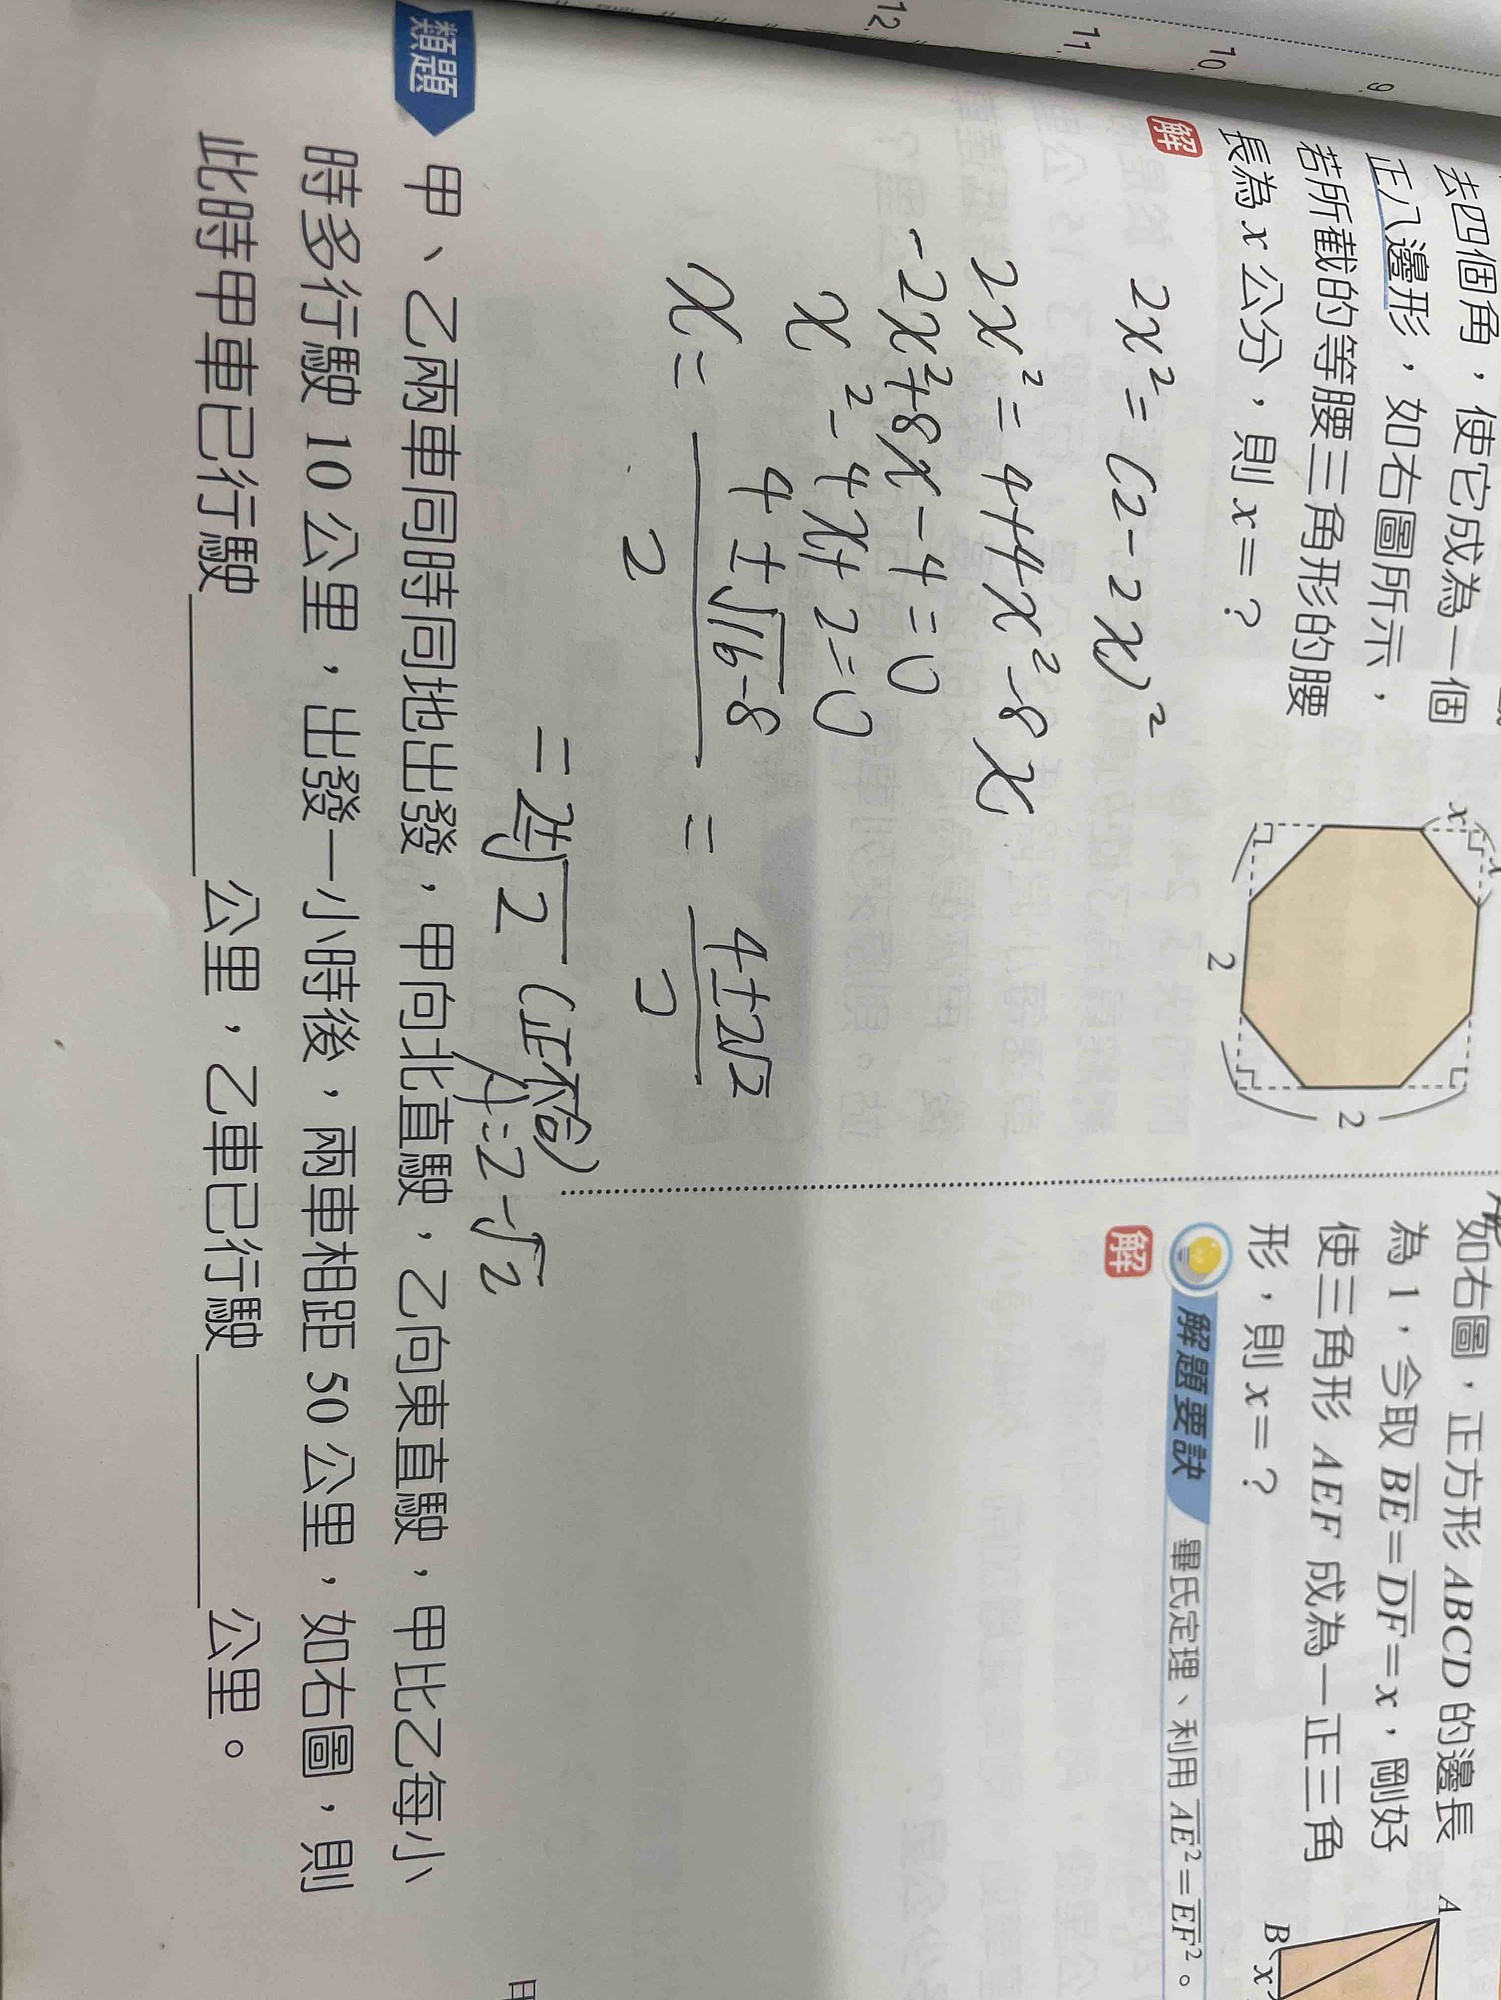 9.
10.
11.
12.
去四個角,使它成為一個
正八邊形,如右圖所示,
若所截的等腰三角形的腰
長為 x 公分,則 x=?
x
x
2
2
解
2x²=(2-2x)²
2x²=4+4x²-8x
-2x²+8x-4=0
x²-4x+2=0
x=4±√16-8/2=4±2√2/2
=2±√2(正不合)
x=2-√2
如右圖,正方形 ABCD 的邊長
為 1,今取 BE=DF=x,剛好
使三角形 AEF 成為一正三角
形,則 x=?
A
B
x
解題要訣 畢氏定理、利用 AE²=EF²。
解
類題 甲、乙兩車同時同地出發,甲向北直駛,乙向東直駛,甲比乙每小
時多行駛 10 公里,出發一小時後,兩車相距 50 公里,如右圖,則
此時甲車已行駛________公里,乙車已行駛________公里。